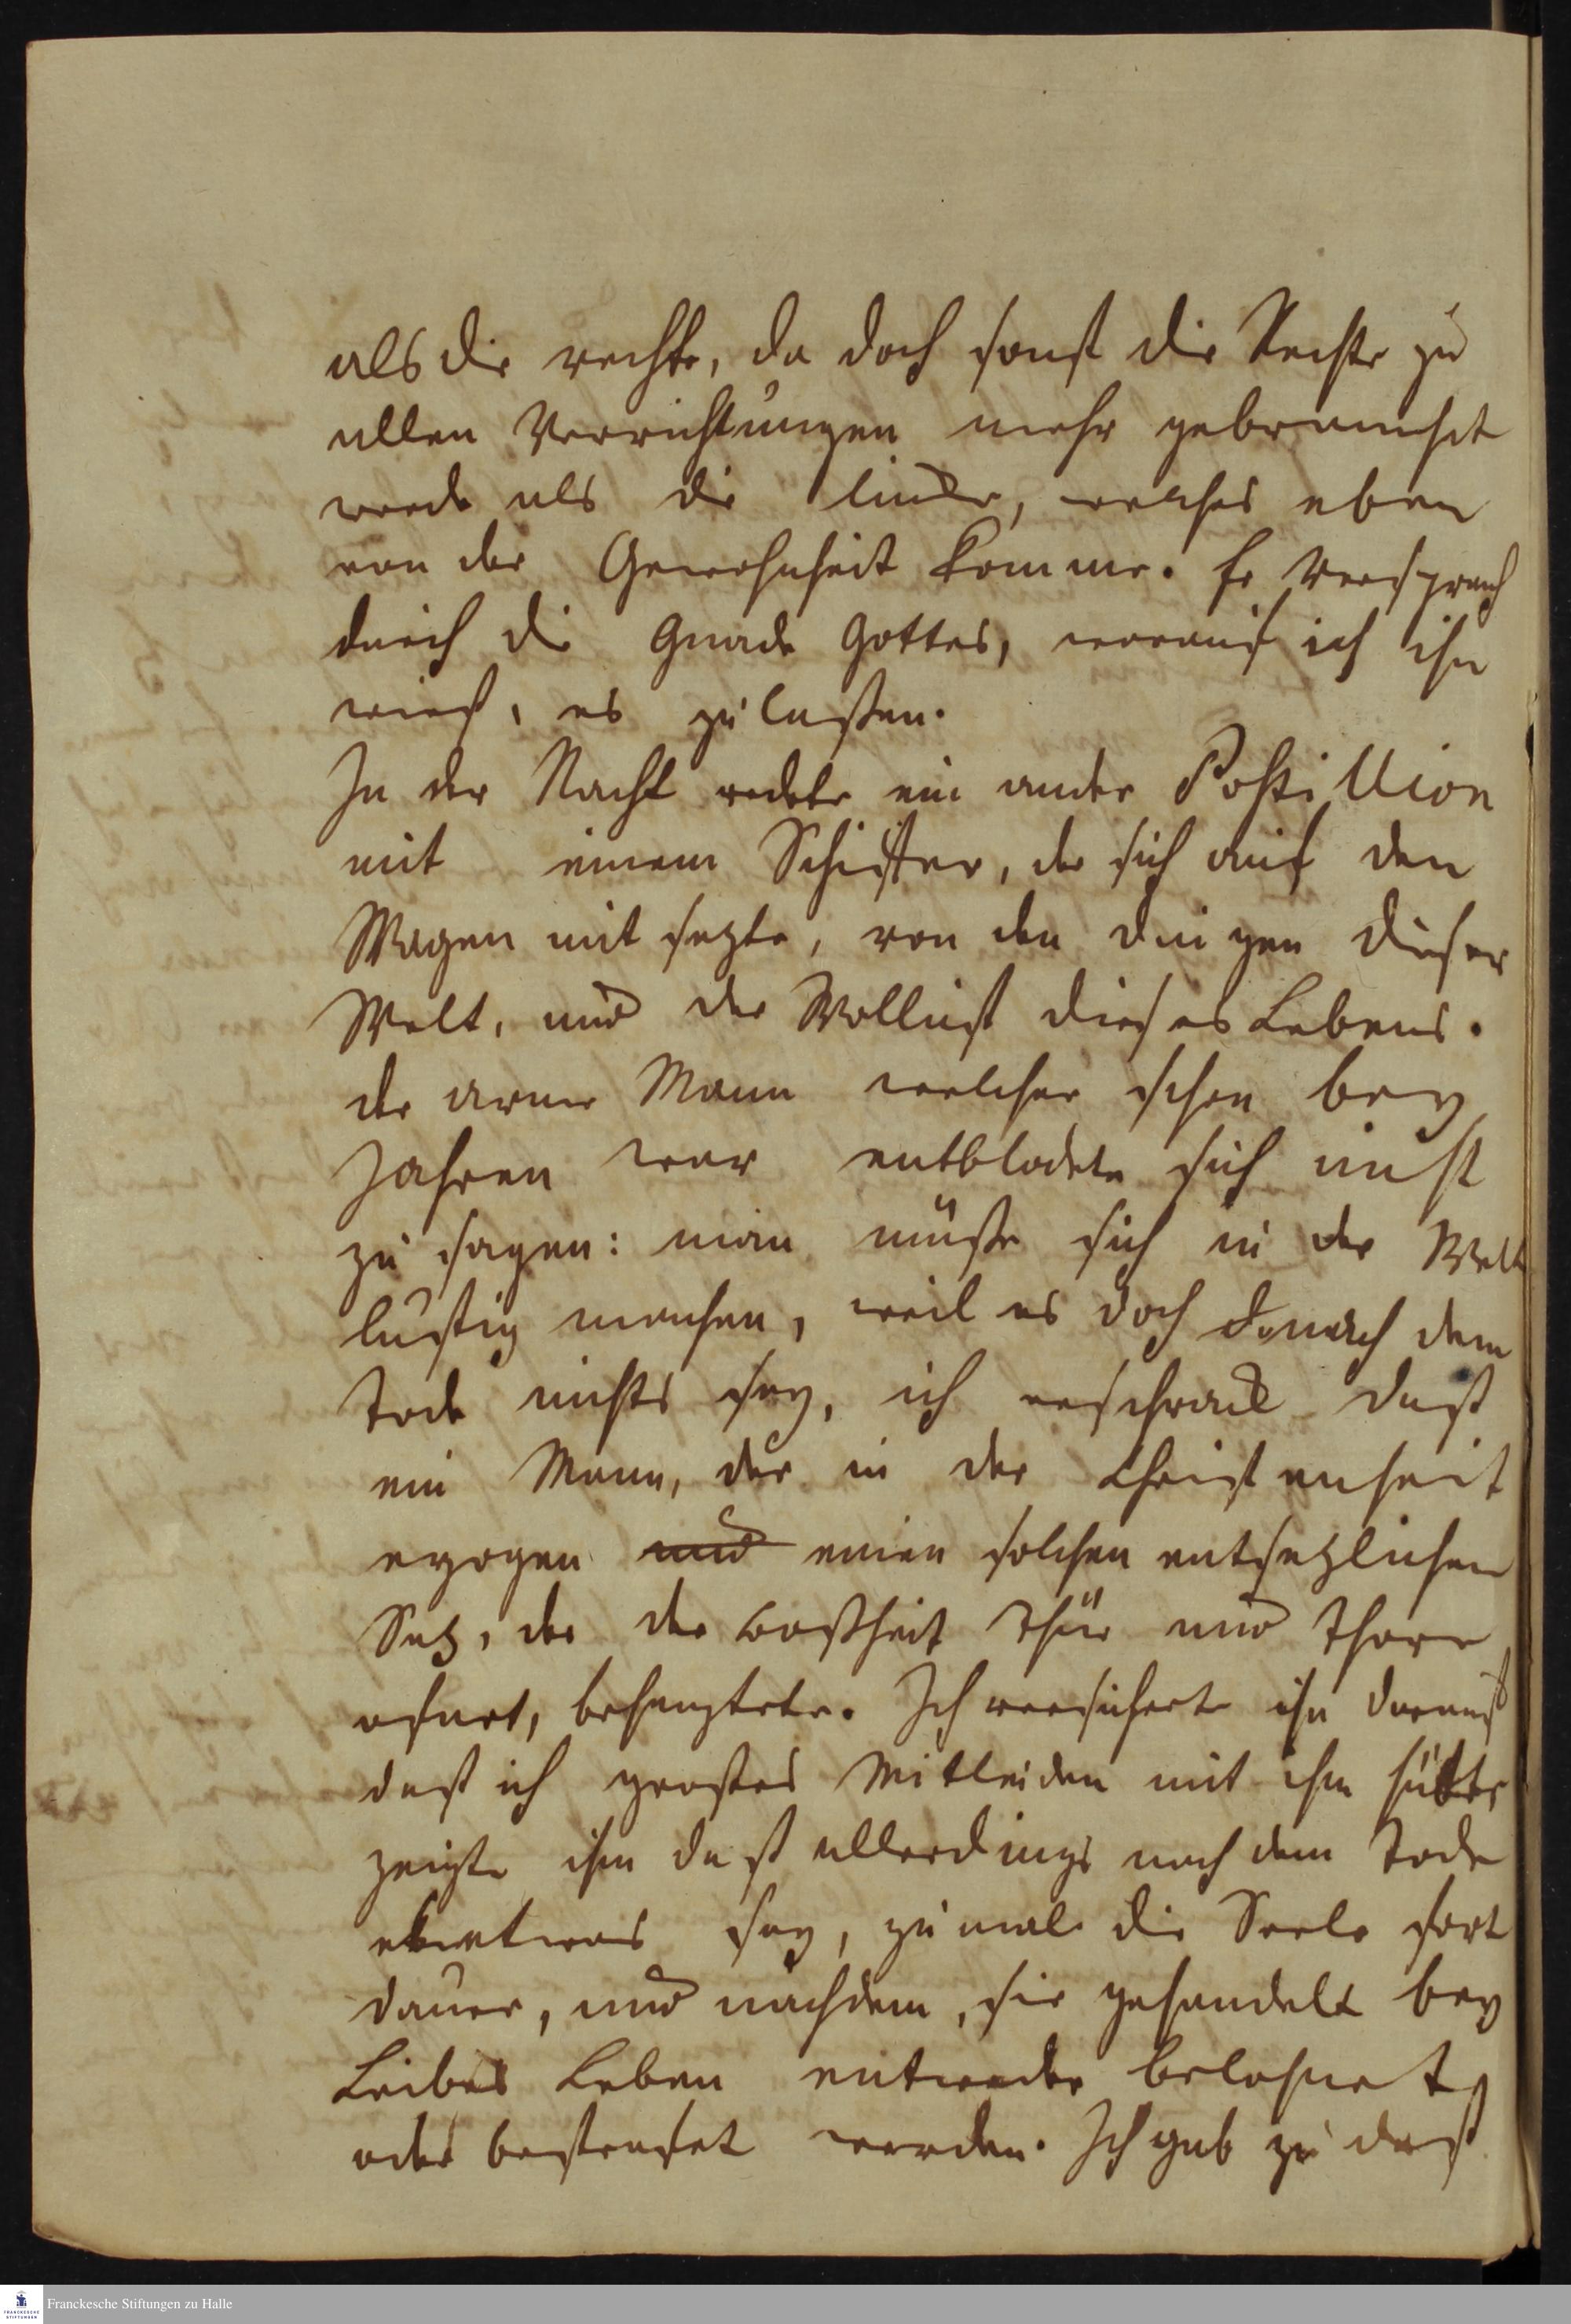 als die rechte, da doch sonst die Rechte zu
allen Verrichtungen mehr gebrauchet
werde als die lincke, welches eben
von der Gewohnheit komme. Er versprach
durch die Gnade Gottes, worauf ich ihn
wieß, es zu laßen.
In der Nacht redete ein ander Postillion
mit einem Schister, der sich auf den
Wagen mit sezte, von den Dingen dieser
Welt, und der Wollust dieses Lebens.
der arme Mann welcher schon bey
Jahren war entblodete sich nicht
zu sagen: man müßte sich in der Welt
lustig machen, weil es doch nach dem
Tode nichts sey, ich erschrack daß
ein Mann, der in der Christenheit
erzogen und einen solchen entsezlichen
Satz, der der Boßheit Thür und Thore
ofnet, behauptete. Ich versicherte ihn darauf
daß ich großes Mitleiden mit ihm hätte
zeigte ihm daß allerdings nach dem Tode
etwas sey, zumal die Seele fort
daure, und nachdem, sie gehandelt bey
Leibes Leben entweder belohnet
oder bestrafet werden. Ich gab zu daß
Franckesche Stiftungen zu Halle